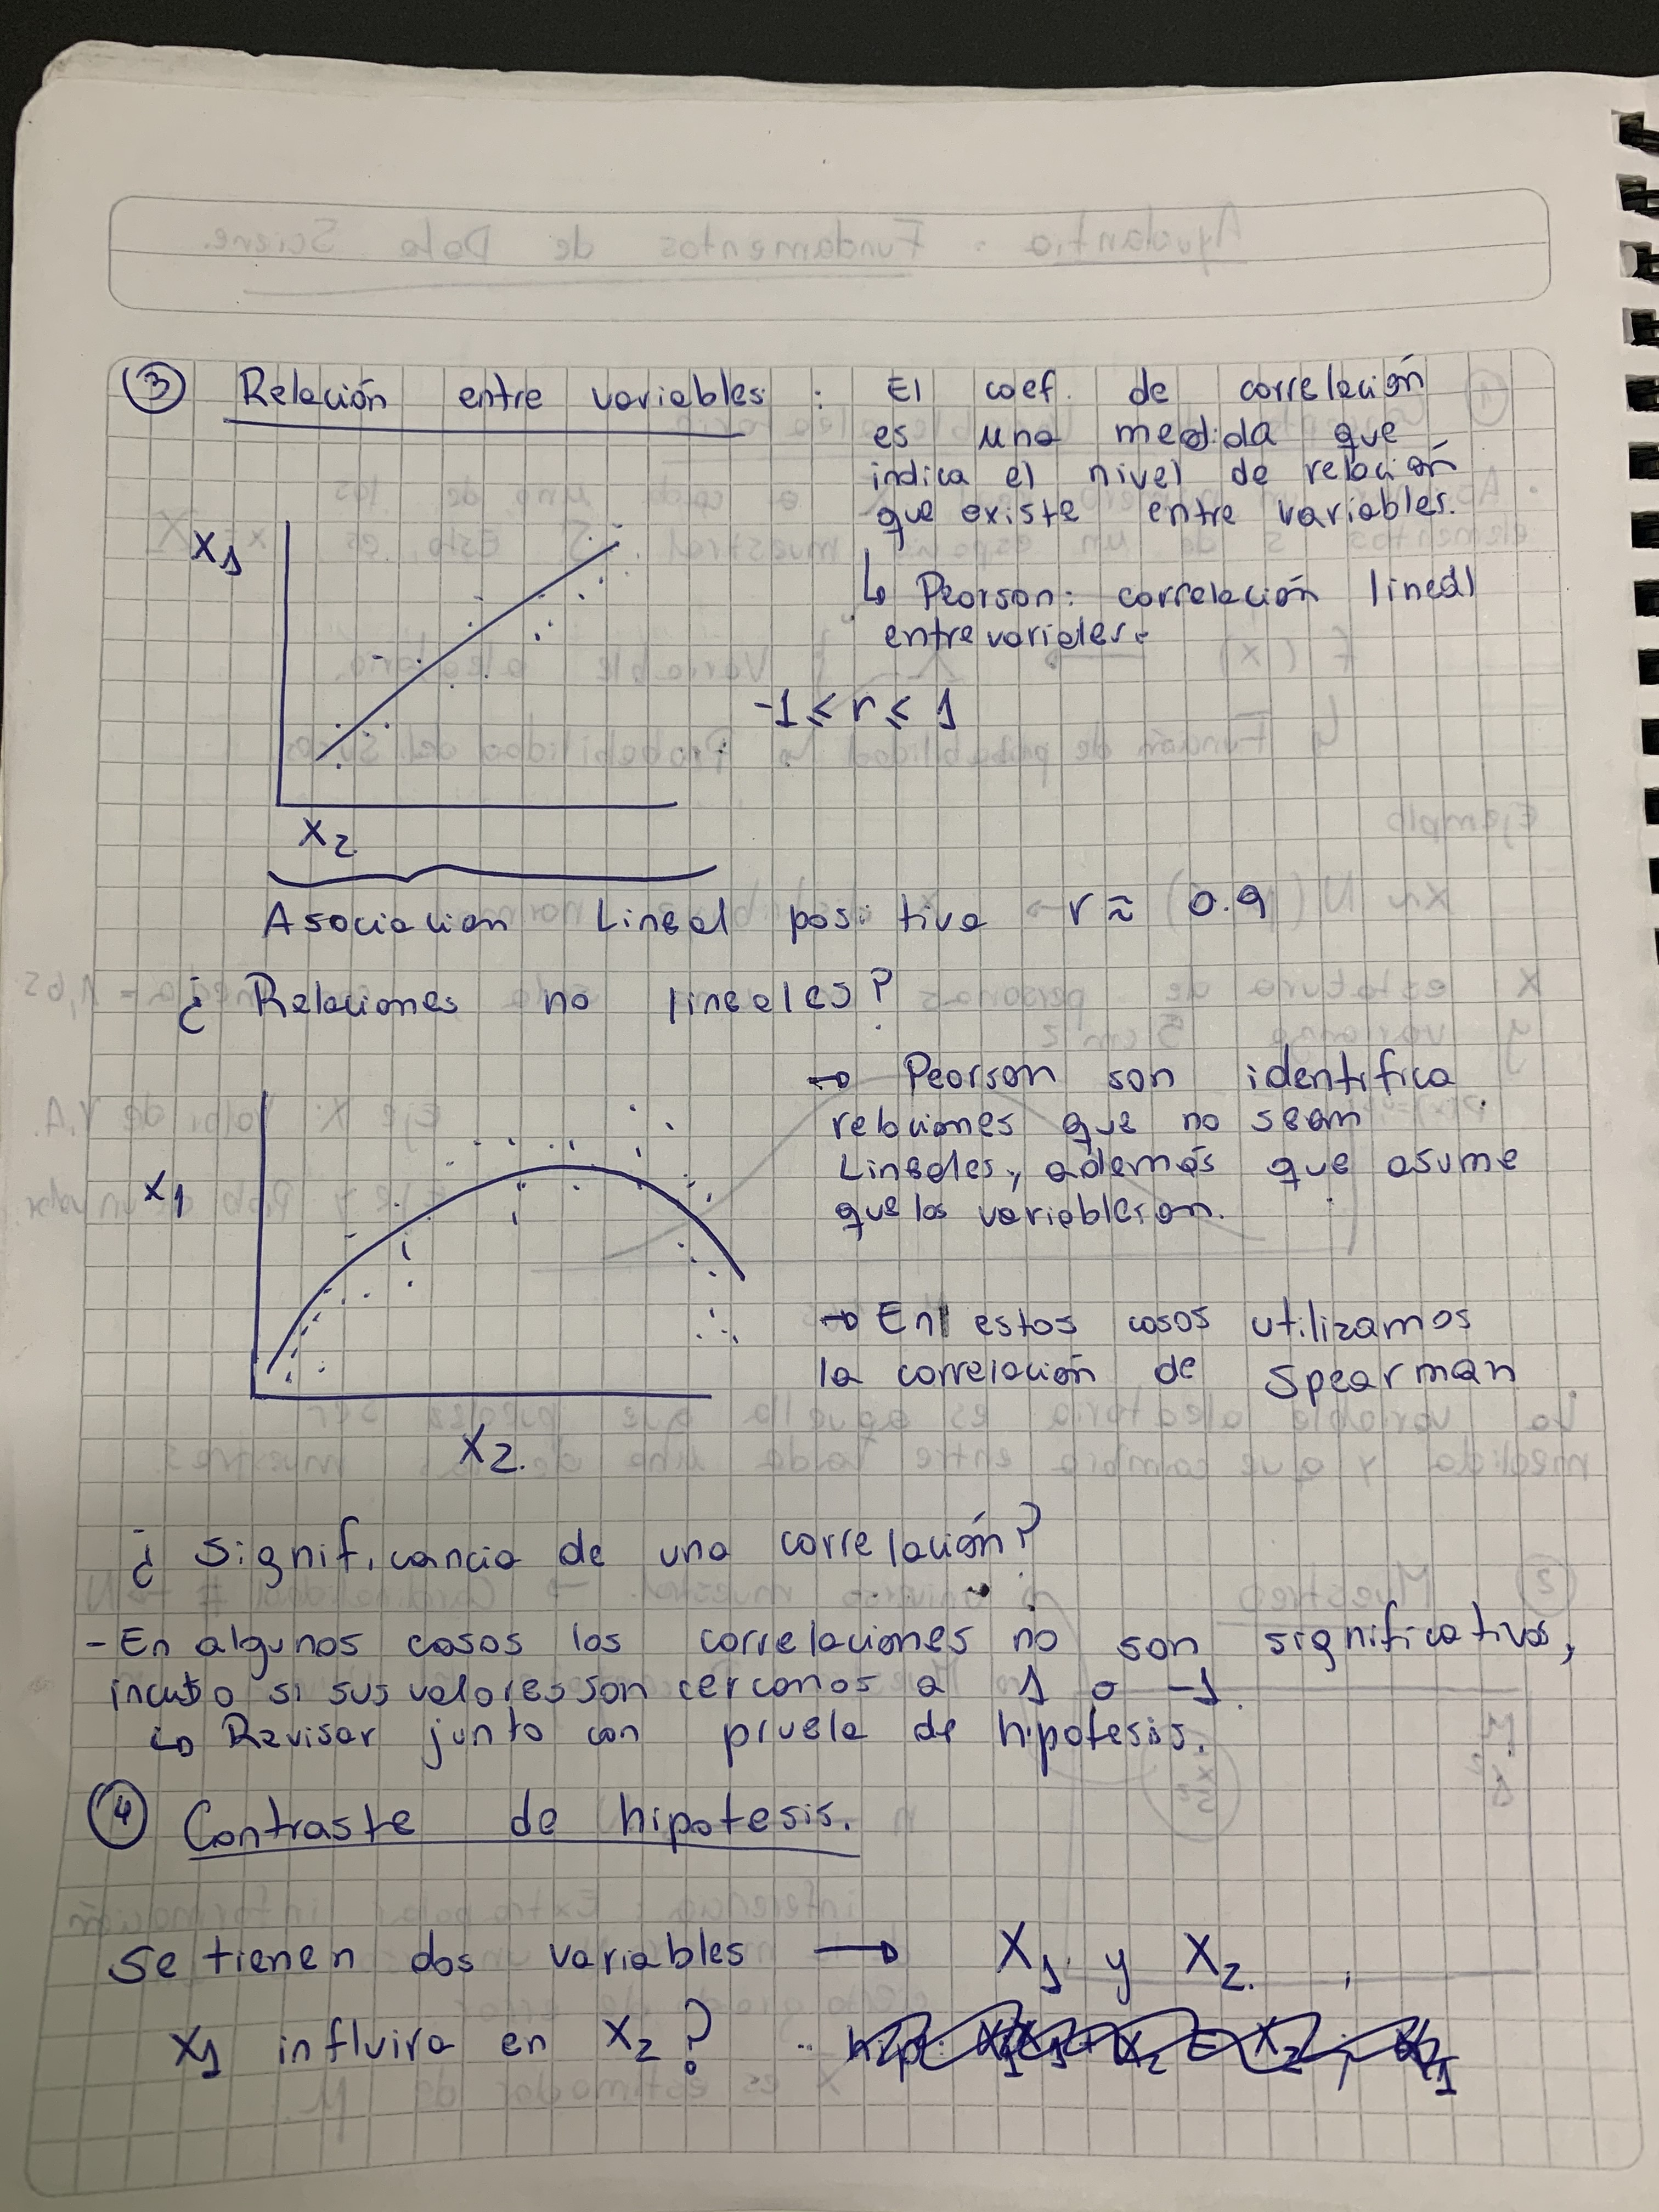 ③ Relación entre variables: El coef. de correlación
es una medida que
indica el nivel de relación
que existe entre variables.
X1
↳ Pearson: correlación lineal
entre variales.
-1 ≤ r ≤ 1
X2
Asociacion Lineal positiva → r ≈ 0.9
¿Relaciones no lineales?
→ Pearson son identifica
relaciones que no sean
Lineales, además que asume
que las variables on.
X1
→ En estos casos utilizamos
la correlación de Spearman
X2.
¿Significancia de una correlación?
- En algunos casos las correlaciones no son significativas,
incuso si sus valores son cercanos a 1 o -1.
↳ Revisar junto con prueba de hipotesis.
④ Contraste de hipotesis.
Se tienen dos variables → X1 y X2.
X1 influira en X2?